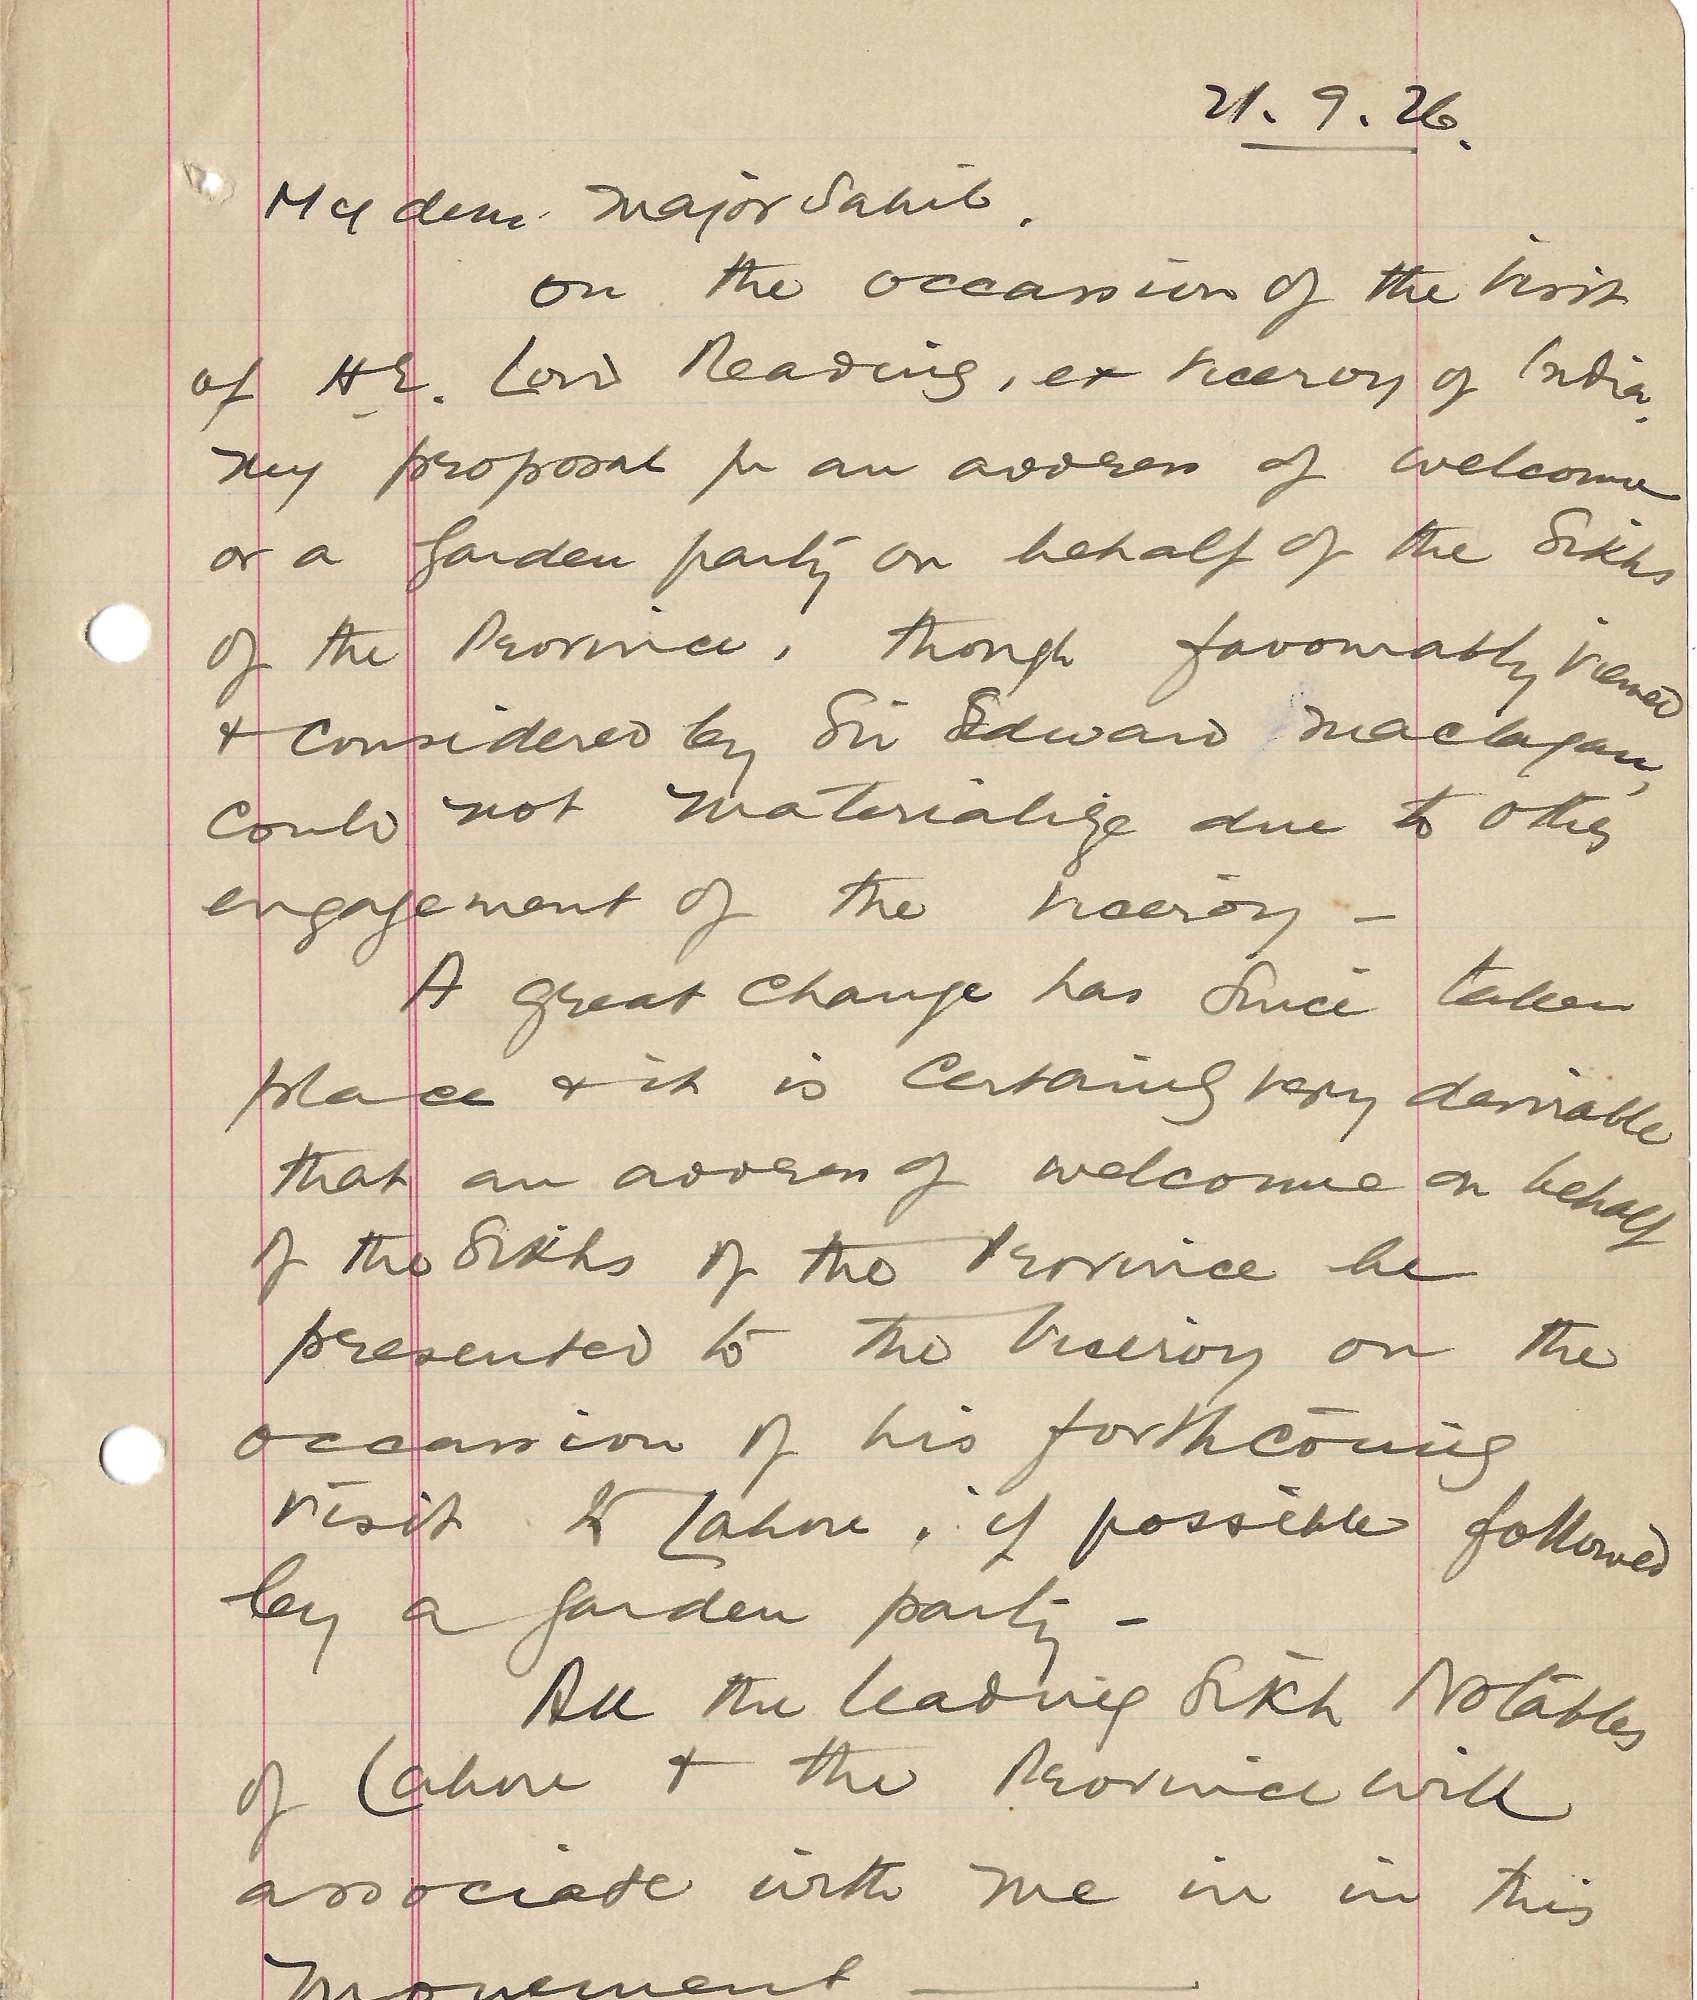 21. 9. 26.
My dear Major Sahib.
on the occassion of the visit
of H.E. Lord Reading, ex Viceroy of India,
my proposal for an address of welcome
or a garden party on behalf of the Sikhs
of the Province, though favourably viewed
+ considered by Sir Edward Maclagan,
could not materialize due to other
engagement of the Viceroy -
A great change has since taken
place + it is certainly very desirable
that an address of welcome on behalf
of the Sikhs of the Province be
presented to the Viceroy on the
occassion of his forthcoming
visit to Lahore, if possible followed
by a garden party -
All the leading Sikh Notables
of Lahore + the Province will
associate with me in in this
movement